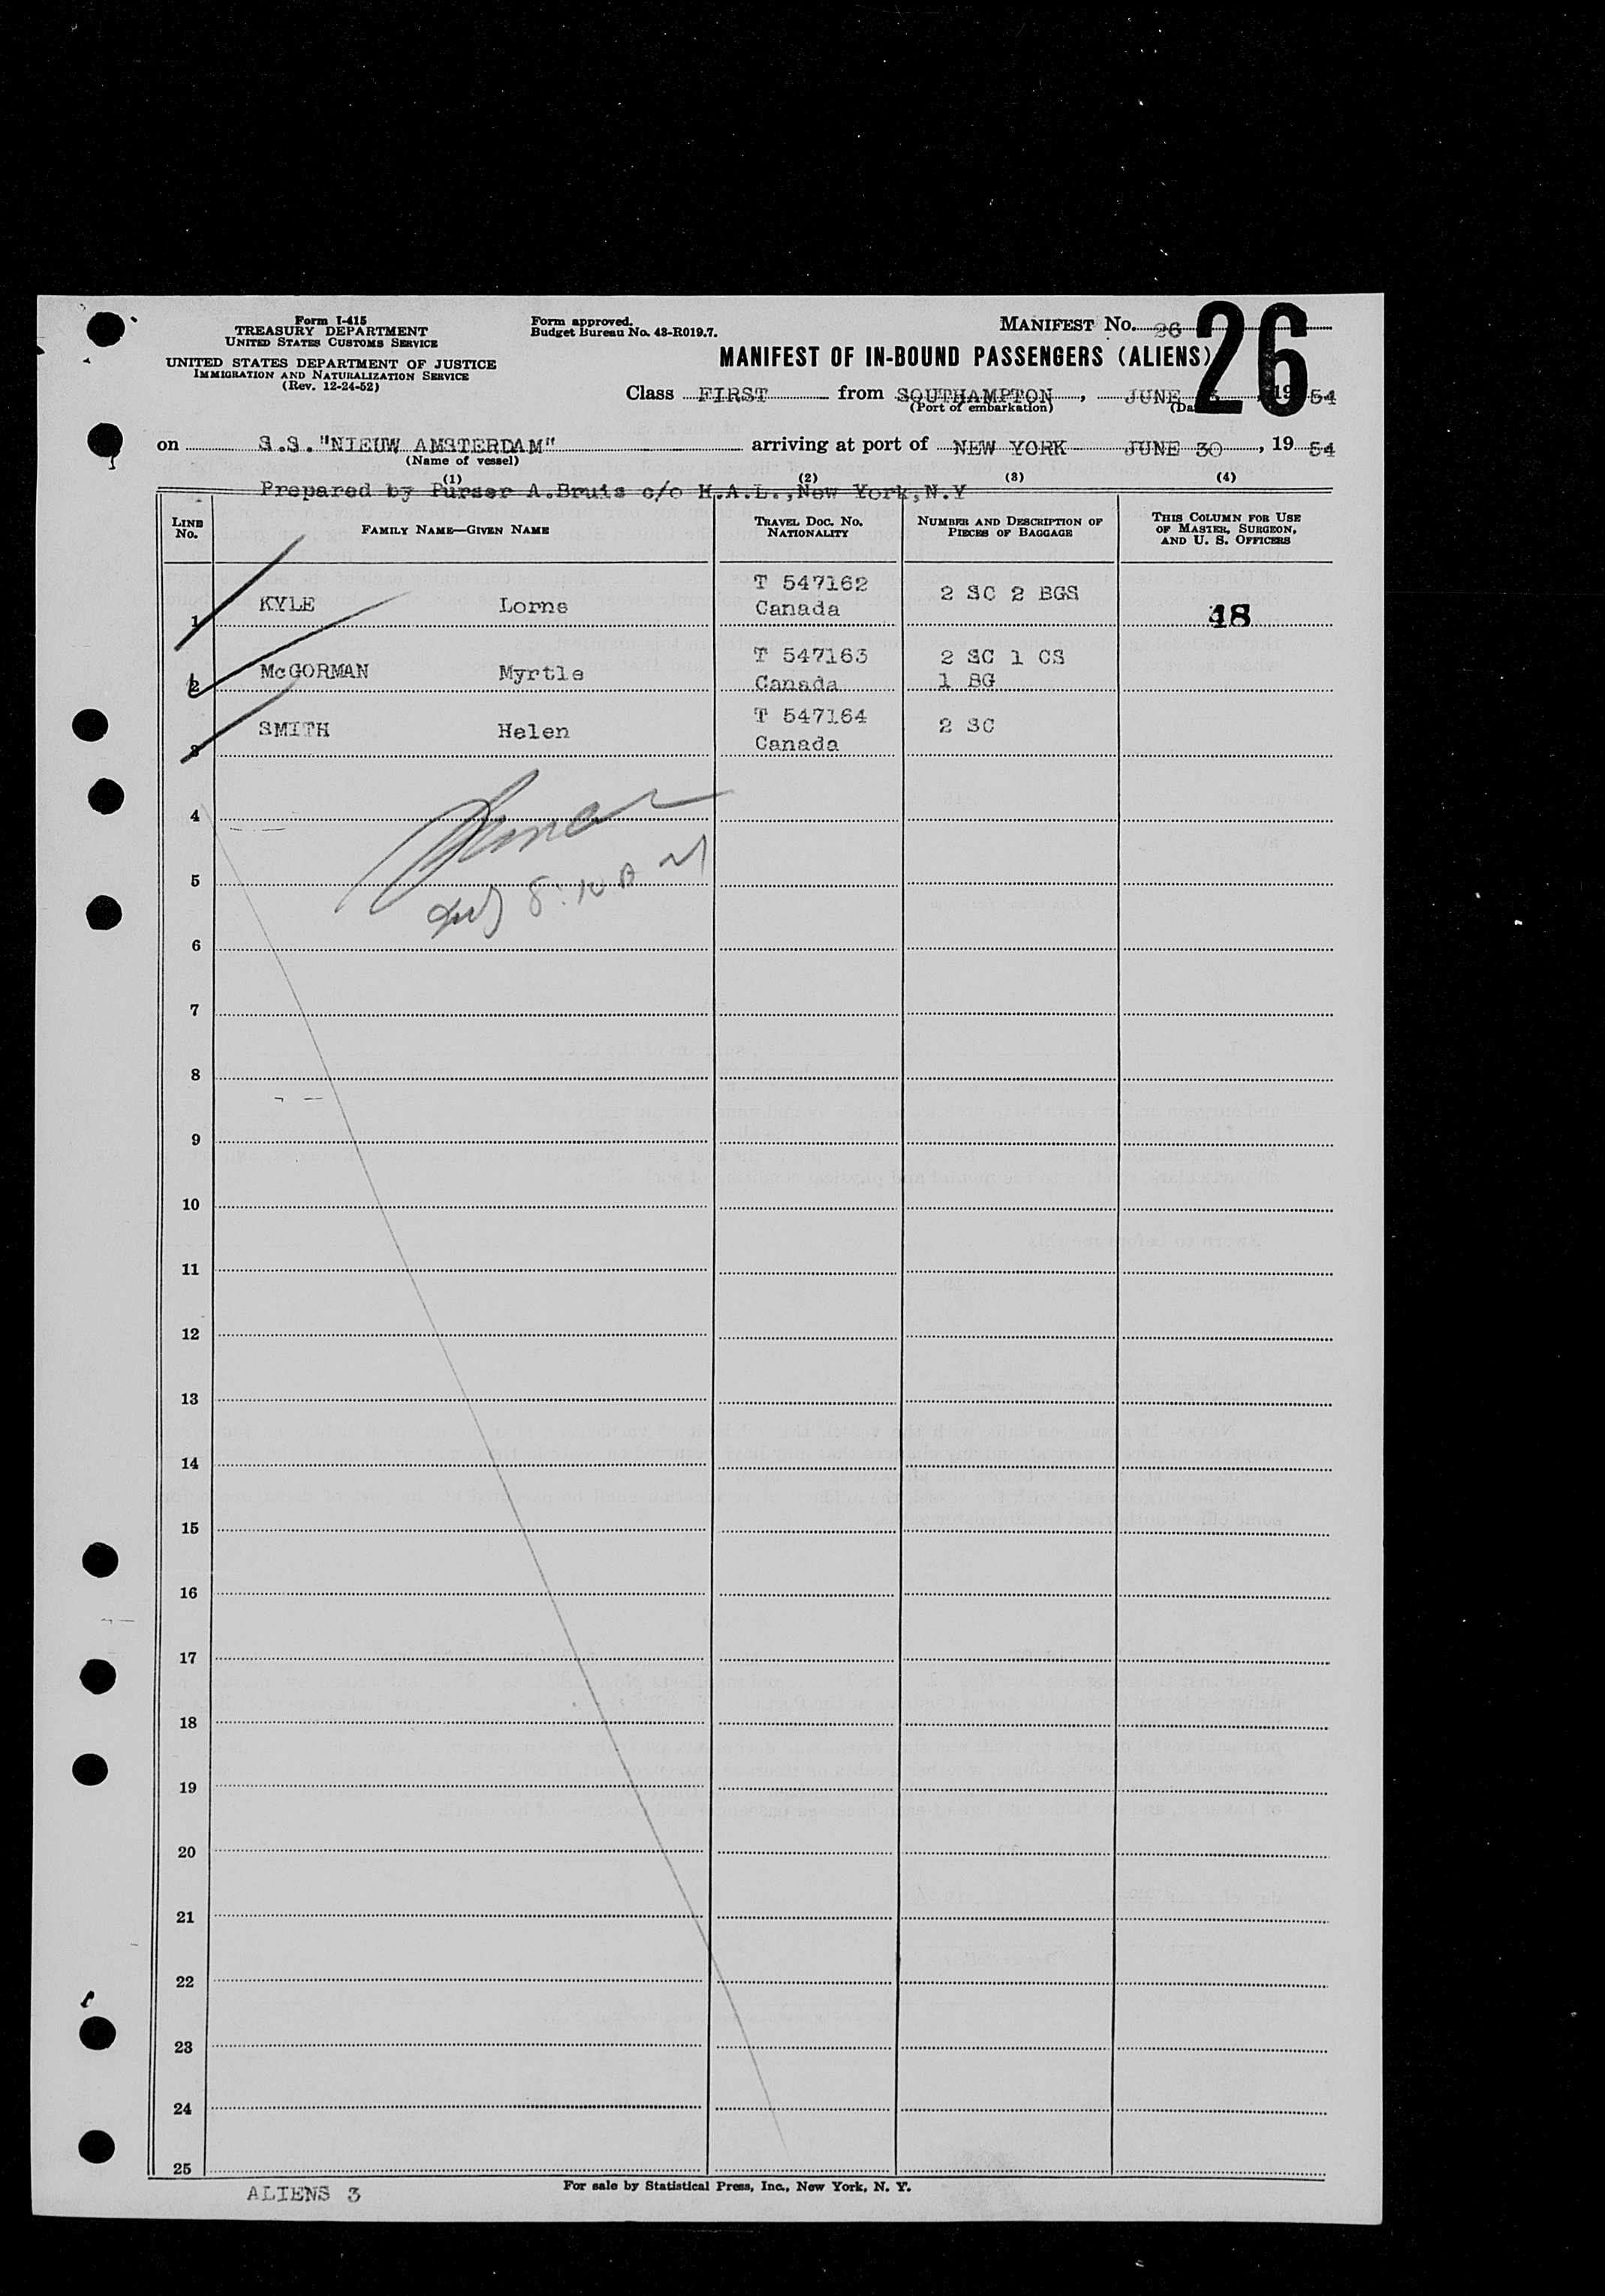 Form I-415
TREASURY DEPARTMENT
UNITED STATES CUSTOMS SERVICE
UNITED STATES DEPARTMENT OF JUSTICE
IMMIGRATION AND NATURALIZATION SERVICE
(Rev. 12-24-52)
Form approved.
Budget Bureau No. 43-R019.7.
MANIFEST No. 26
26
MANIFEST OF IN-BOUND PASSENGERS (ALIENS)
Class FIRST from SOUTHAMPTON, JUNE 1954
(Port of embarkation)
on S.S. "NIEUW AMSTERDAM" arriving at port of NEW YORK JUNE 30, 1954
(Name of vessel)
(1) (2) (3) (4)
Prepared by Purser A.Bruis c/o H.A.L.,New York,N.Y
LINE No. FAMILY NAME—GIVEN NAME TRAVEL DOC. No. NATIONALITY NUMBER AND DESCRIPTION OF PIECES OF BAGGAGE THIS COLUMN FOR USE OF MASTER, SURGEON, AND U. S. OFFICERS
1 KYLE Lorne T 547162 Canada 2 SC 2 BGS 48
2 McGORMAN Myrtle T 547163 Canada 2 SC 1 CS 1 BG
3 SMITH Helen T 547164 Canada 2 SC
4
5
6
7
8
9
10
11
12
13
14
15
16
17
18
19
20
21
22
23
24
25
ALIENS 3
For sale by Statistical Press, Inc., New York, N. Y.